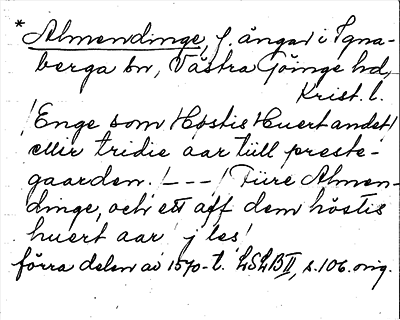 * Almendinge, f. ängar i Igna-
berga sn, Västra Göinge hd,
Krist. l.
/Enge som Høstis Huert andet/
ellir tridie aar tüll preste-
gaarden. /---/ Füre Almen-
dinge, och ett aff dem höstis
huert aar j les/
förra delen av 1570-t. LSLB II, s. 106. orig.